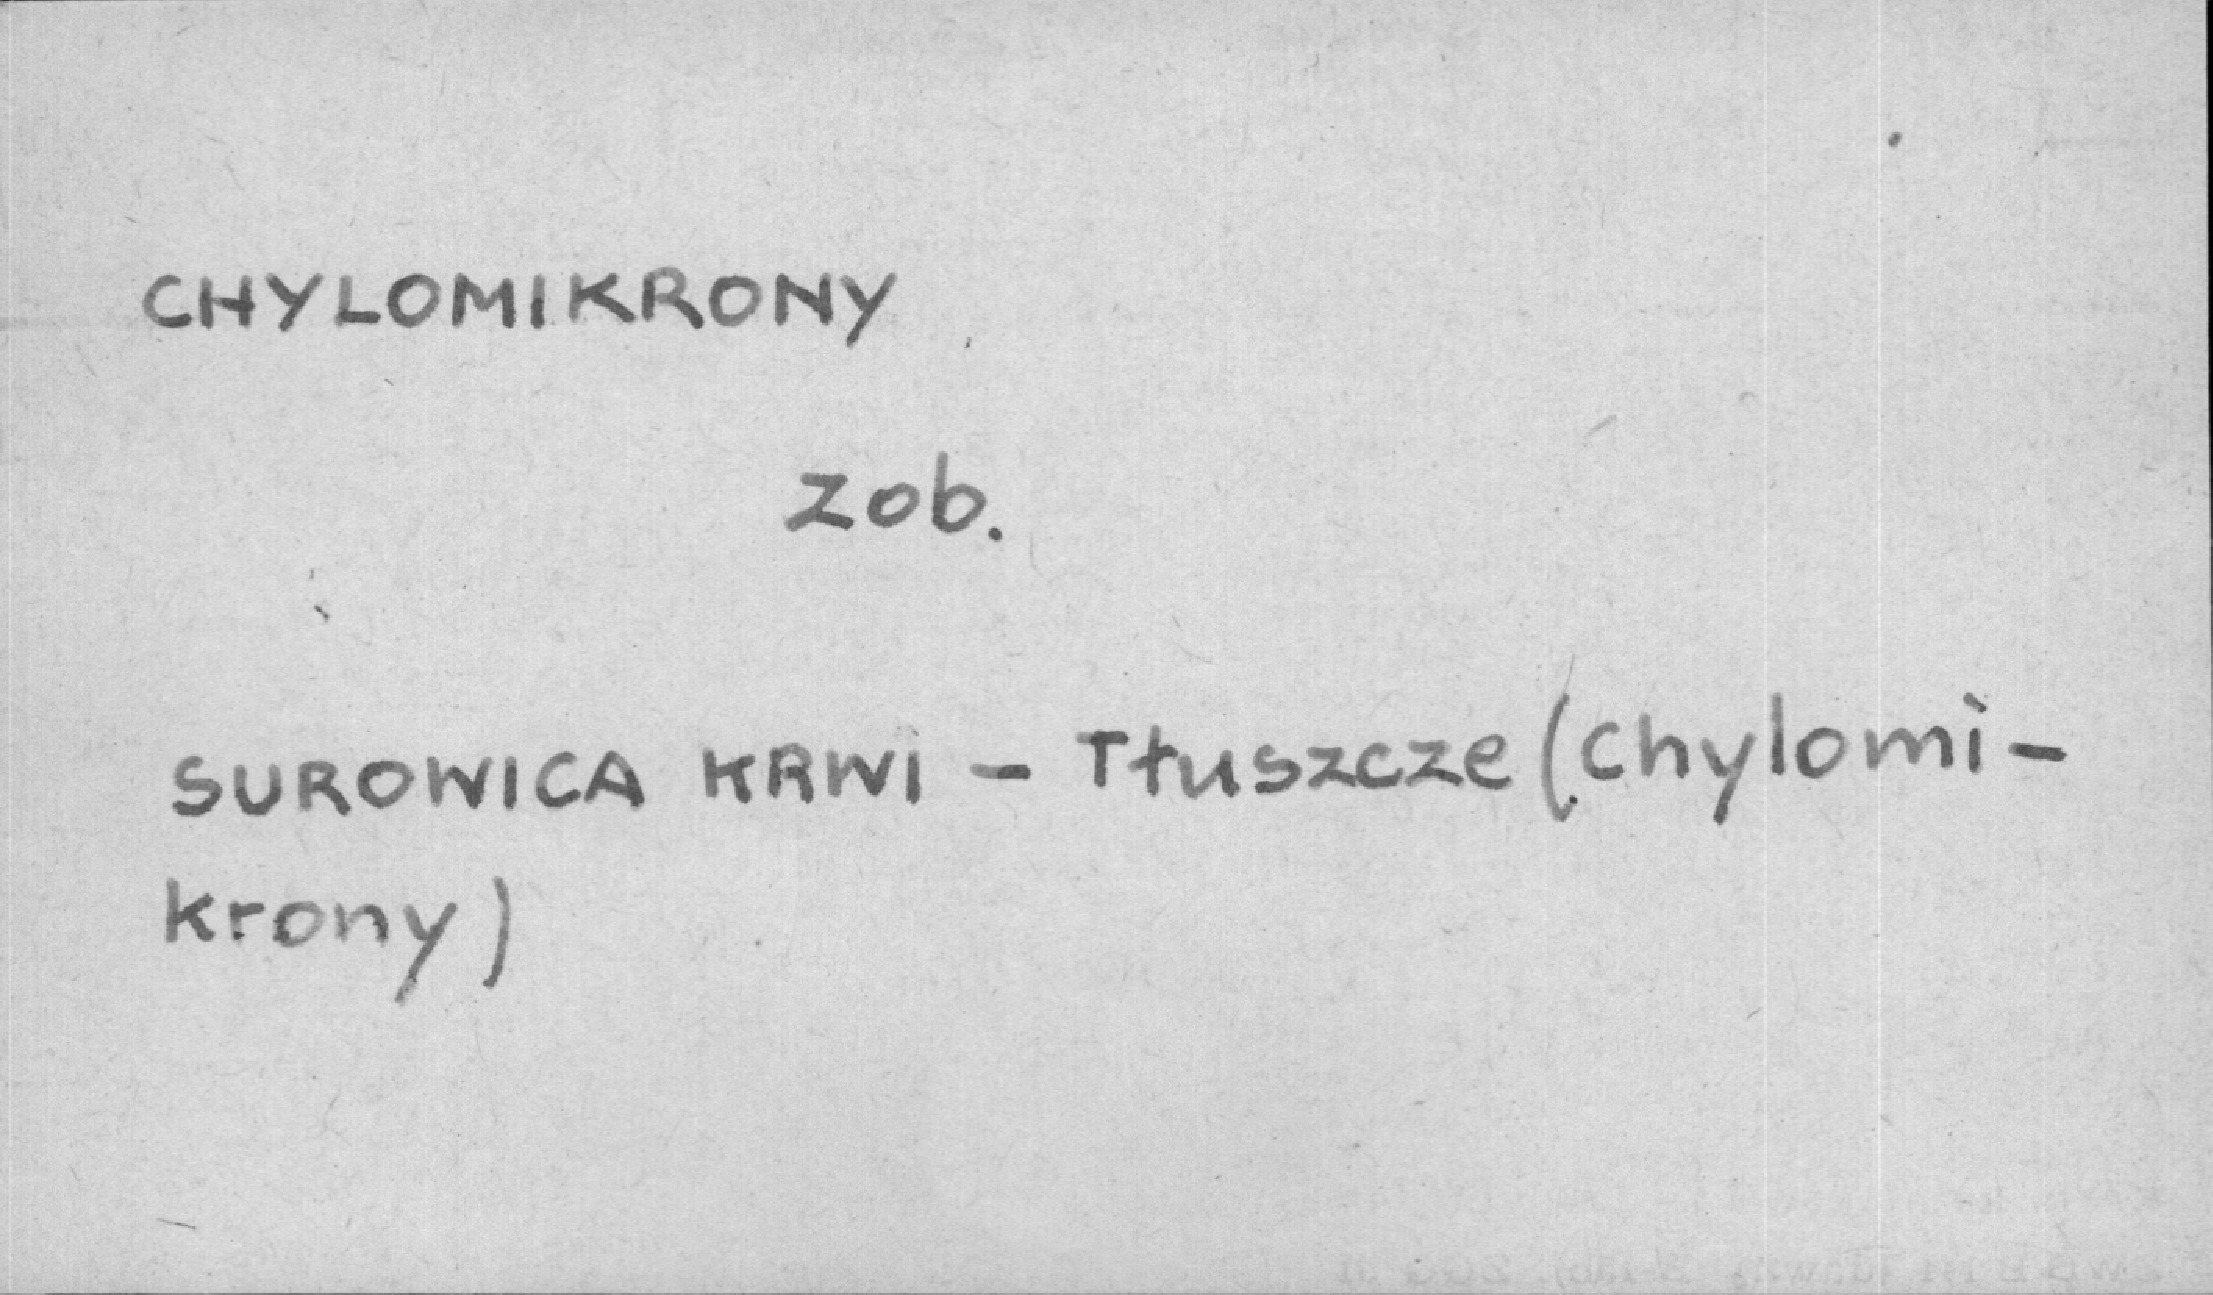 CHYLOMIKRONY
zob.
SUROWICA KRWI - Tłuszcze (chylomi-
krony)